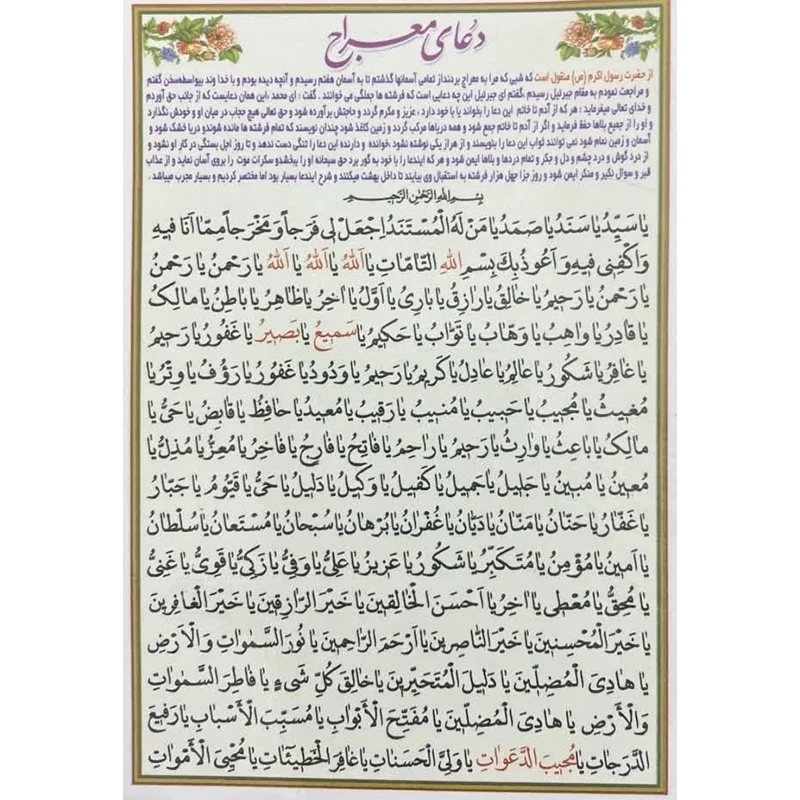 دعای معراج
از حضرت رسول اکرم (ص) منقول است که شبی که مرا به معراج بردند از تمامی آسمانها گذشتم تا به آسمان هفتم رسیدم و آنچه دیده بودم و با خدا وند بیواسطه سخن گفتم
و مراجعت نمودم به مقام جبرئیل رسیدم ،گفتم ای جبرئیل این چه دعایی است که فرشته ها جملگی می خوانند . گفت : ای محمد ،این همان دعایست که از جانب حق آوردم
و خدای تعالی میفرماید : هر که از آدم تا خاتم این دعا را بخواند یا با خود دارد ، عزیز و مکرم گردد و حاجتش برآورده شود و حق تعالی هیچ حجاب در میان او و خودش نگذارد
و او را از جمیع بلاها حفظ فرماید و اگر از آدم تا خاتم جمع شود و همه دریاها مرکب گردد و زمین کاغذ شود چندان نویسند که تمام فرشته ها مانده شوند و دریا خشک شود و
آسمان و زمین تمام شود نمی توانند ثواب این دعا را بنویسند و از هزار یکی نوشته نشود ،خوانده و دارنده این دعا را تنگی دست ندهد و تا روز اجل بستگی در کار او نشود و
از درد گوش و درد چشم و دل و جگر و تمام دردها و بلاها ایمن شود و هر که ایندعا را با خود به گور برد حق سبحانه او را ببخشد و سکرات موت را بروی آسان نماید و از عذاب
قبر و سوال نکیر و منکر ایمن شود و روز جزا چهل هزار فرشته به استقبال وی بیایند تا داخل بهشت میکنند و شرح ایندعا بسیار بود اما مختصر کردیم و بسیار مجرب میباشد .
بِسْمِ اللهِ الرَّحْمٰنِ الرَّحِیمِ
یٰا سَیِّدُ یٰا سَنَدُ یٰا صَمَدُ یٰا مَنْ لَهُ الْمُسْتَنَدُ اِجْعَلْ لی فَرَجاً وَ مَخْرَجاً مِمّٰا اَنَا فیهِ
وَ اکْفِنی فیهِ وَ اَعُوذُ بِكَ بِسْمِ اللهِ التّٰامّٰاتِ یٰا اَللهُ یٰا اَللهُ یٰا اَللهُ یٰا رَحْمٰنُ یٰا رَحْمٰنُ
یٰا رَحْمٰنُ یٰا رَحیمُ یٰا خٰالِقُ یٰا رٰازِقُ یٰا بٰارِئُ یٰا اَوَّلُ یٰا اٰخِرُ یٰا ظٰاهِرُ یٰا بٰاطِنُ یٰا مٰالِکُ
یٰا قٰادِرُ یٰا وٰاهِبُ یٰا وَهّٰابُ یٰا تَوّٰابُ یٰا حَکیمُ یٰا سَمیعُ یٰا بَصیرُ یٰا غَفُورُ یٰا رَحیمُ
یٰا غٰافِرُ یٰا شَکُورُ یٰا عٰالِمُ یٰا عٰادِلُ یٰا کَریمُ یٰا رَحیمُ یٰا وَدُودُ یٰا غَفُورُ یٰا رَؤُفُ یٰا وِتْرُ یٰا
مُغیثُ یٰا مُجیبُ یٰا حَبیبُ یٰا مُنیبُ یٰا رَقیبُ یٰا مُعیدُ یٰا حٰافِظُ یٰا قٰابِضُ یٰا حَیُّ یٰا
مٰالِکُ یٰا بٰاعِثُ یٰا وٰارِثُ یٰا رَحیمُ یٰا رٰاحِمُ یٰا فٰاتِحُ یٰا فٰارِجُ یٰا فٰاخِرُ یٰا مُعِزُّ یٰا مُذِلُّ یٰا
مُعینُ یٰا مُبینُ یٰا جَلیلُ یٰا جَمیلُ یٰا کَفیلُ یٰا وَکیلُ یٰا دَلیلُ یٰا حَیُّ یٰا قَیُّومُ یٰا جَبّٰارُ
یٰا غَفّٰارُ یٰا حَنّٰانُ یٰا مَنّٰانُ یٰا دَیّٰانُ یٰا غُفْرٰانُ یٰا بُرْهٰانُ یٰا سُبْحٰانُ یٰا مُسْتَعٰانُ یٰا سُلْطٰانُ
یٰا اَمینُ یٰا مُؤْمِنُ یٰا مُتَکَبِّرُ یٰا شَکُورُ یٰا عَزیزُ یٰا عَلِیُّ یٰا وَفِیُّ یٰا زَکِیُّ یٰا قَوِیُّ یٰا غَنِیُّ
یٰا مُحِقُّ یٰا مُعْطی یٰا اٰخِرُ یٰا اَحْسَنَ الْخٰالِقینَ یٰا خَیْرَ الرّٰازِقینَ یٰا خَیْرَ الْغٰافِرینَ
یٰا خَیْرَ الْمُحْسِنینَ یٰا خَیْرَ النّٰاصِرینَ یٰا اَرْحَمَ الرّٰاحِمینَ یٰا نُورَ السَّمٰوٰاتِ وَ الْاَرْضِ
یٰا هٰادِیَ الْمُضِلّینَ یٰا دَلیلَ الْمُتَحَیِّرینَ یٰا خٰالِقَ کُلِّ شَیْءٍ یٰا فٰاطِرَ السَّمٰوٰاتِ
وَ الْاَرْضِ یٰا هٰادِیَ الْمُضِلّینَ یٰا مُفَتِّحَ الْاَبْوٰابِ یٰا مُسَبِّبَ الْاَسْبٰابِ یٰا رَفیعَ
الدَّرَجٰاتِ یٰا مُجیبَ الدَّعَوٰاتِ یٰا وَلِیَّ الْحَسَنٰاتِ یٰا غٰافِرَ الْخَطیئٰاتِ یٰا مُحْیِیَ الْاَمْوٰاتِ